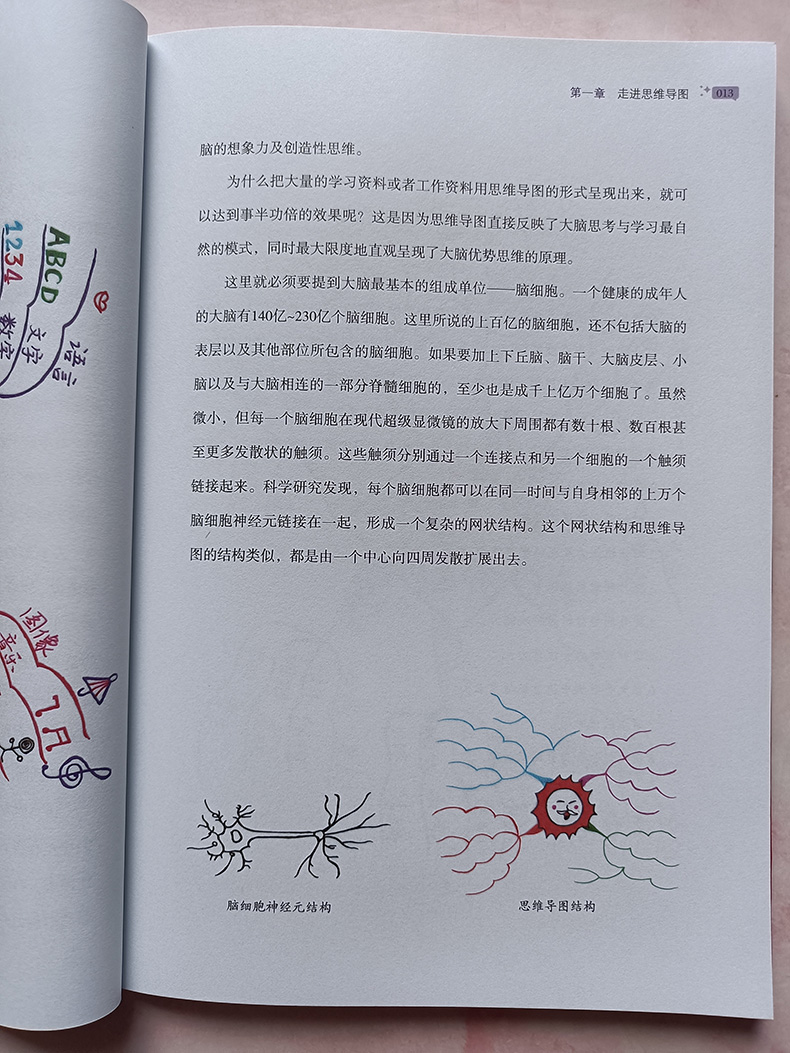 ABCD
1234
语言
文字
数字
图像
音乐
第一章 走进思维导图 013
脑的想象力及创造性思维。
为什么把大量的学习资料或者工作资料用思维导图的形式呈现出来，就可
以达到事半功倍的效果呢？这是因为思维导图直接反映了大脑思考与学习最自
然的模式，同时最大限度地直观呈现了大脑优势思维的原理。
这里就必须要提到大脑最基本的组成单位——脑细胞。一个健康的成年人
的大脑有140亿~230亿个脑细胞。这里所说的上百亿的脑细胞，还不包括大脑的
表层以及其他部位所包含的脑细胞。如果要加上下丘脑、脑干、大脑皮层、小
脑以及与大脑相连的一部分脊髓细胞的，至少也是成千上亿万个细胞了。虽然
微小，但每一个脑细胞在现代超级显微镜的放大下周围都有数十根、数百根甚
至更多发散状的触须。这些触须分别通过一个连接点和另一个细胞的一个触须
链接起来。科学研究发现，每个脑细胞都可以在同一时间与自身相邻的上万个
脑细胞神经元链接在一起，形成一个复杂的网状结构。这个网状结构和思维导
图的结构类似，都是由一个中心向四周发散扩展出去。
脑细胞神经元结构
思维导图结构